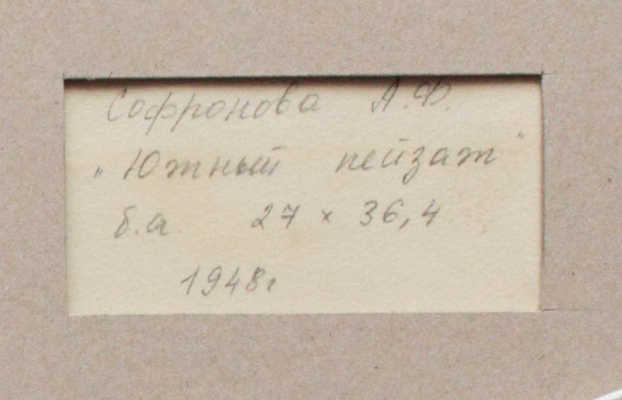 Софронова А.Ф.
„Южный пейзаж"
б.а 27 × 36,4
1948г